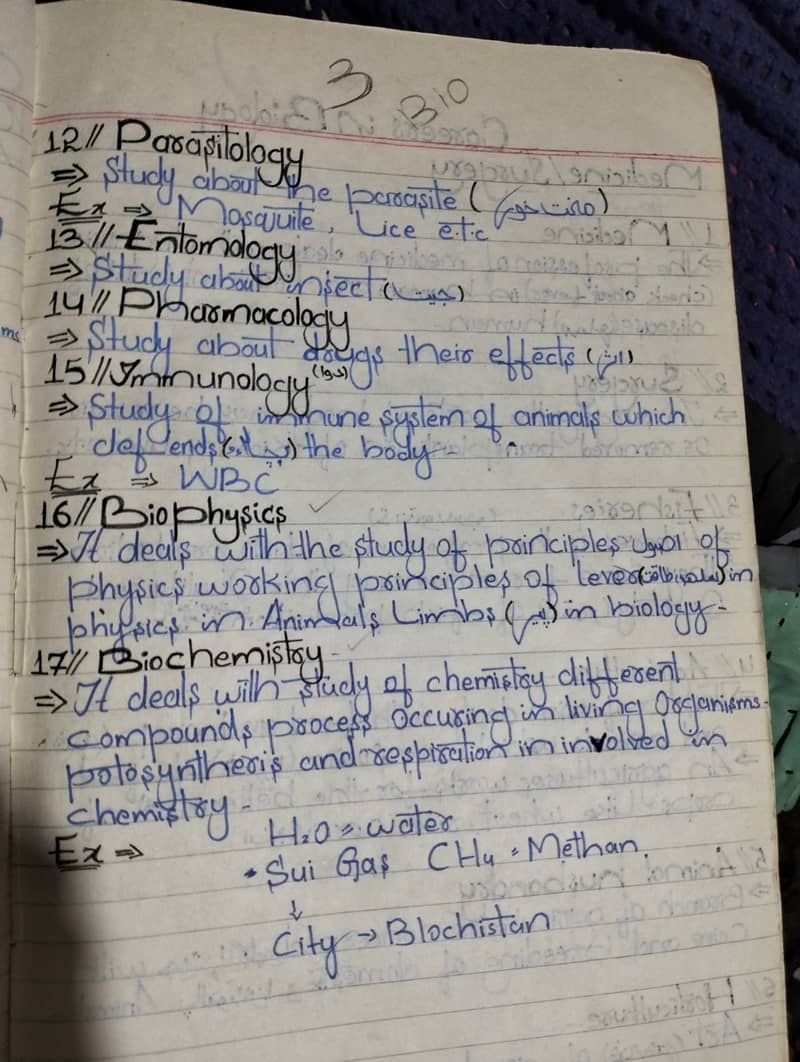 3
Bio
12// Parasitology
⇒ Study about the parasite (مفت خور)
Ex ⇒ Mosquite, Lice e.t.c
13// Entomology
⇒ Study about insect
14// Pharmacology
⇒ Study about drugs their effects (اثر)
(دوا)
15// Immunology
⇒ Study of immune system of animals which
defends the body-
Ex ⇒ WBC
16// Biophysics
⇒ It deals with the study of principles اصول of
physics working principles of lever in
physics in Animals Limbs in biology-
17// Biochemistry
⇒ It deals with study of chemistry different
compounds process occuring in living Organisms-
potosyntheris and respiration in involved in
chemistry-
Ex ⇒ H₂O = water
• Sui Gas CH₄ = Methan.
↓
City → Blochistan